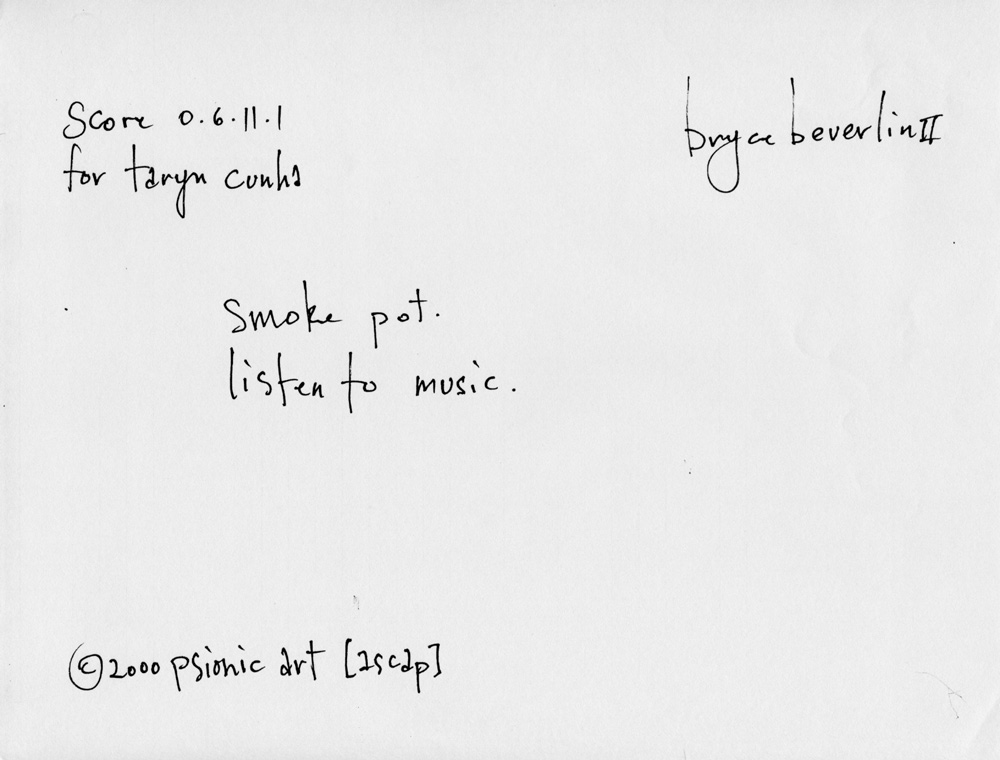 Score 0.6.11.1
for taryn cunha
bryce beverlin II
Smoke pot.
listen to music.
©2000 psionic art [ascap]